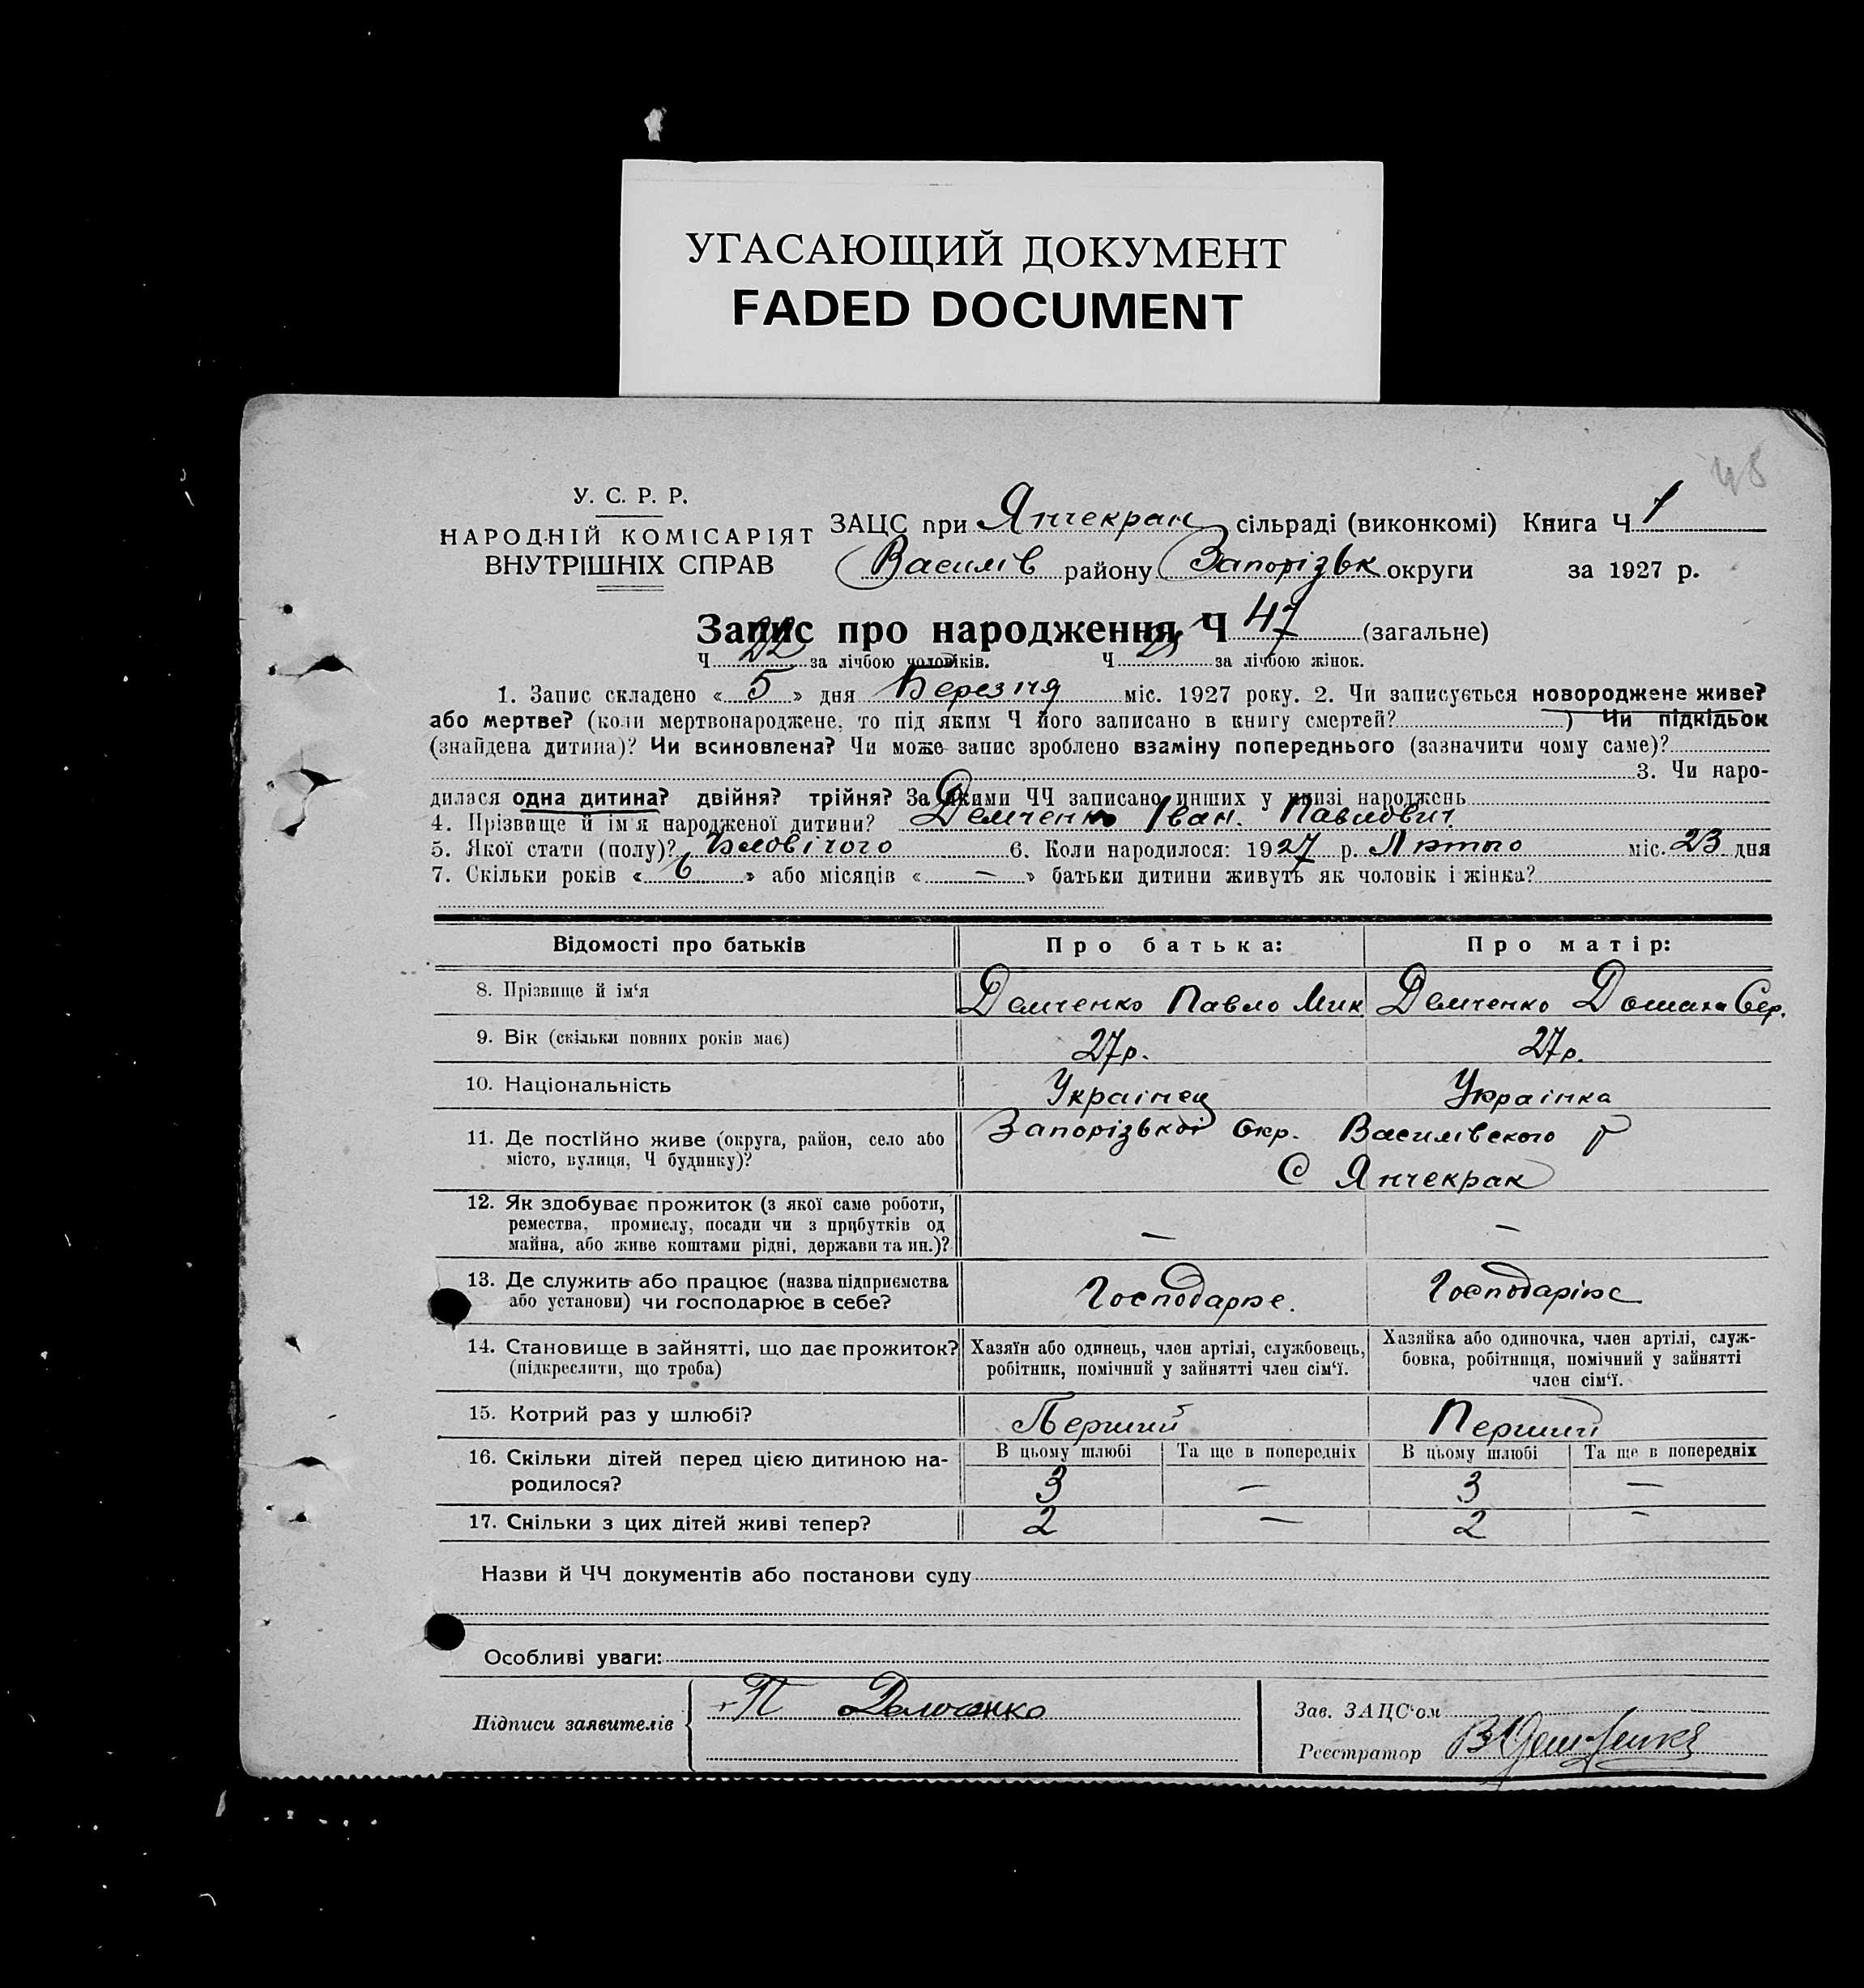 УГАСАЮЩИЙ ДОКУМЕНТ
FADED DOCUMENT
48
У. С. Р. Р.
НАРОДНІЙ КОМІСАРІЯТ
ВНУТРІШНІХ СПРАВ
ЗАЦС при Янчекрак сільраді (виконкомі) Книга Ч 1
Василів району Запорізьк округи за 1927 р.
Запис про народження Ч 47 (загальне)
Ч 22 за лічбою чоловіків. Ч 25 за лічбою жінок.
1. Запис складено « 5 » дня Березня міс. 1927 року. 2. Чи записується новороджене живе?
або мертве? (коли мертвонароджене, то під яким Ч його записано в книгу смертей? ) Чи підкідьок
(знайдена дитина)? Чи всиновлена? Чи може запис зроблено взаміну попереднього (зазначити чому саме)?
3. Чи наро-
дилася одна дитина? двійня? трійня? За якими ЧЧ записано инших у книзі народжень
4. Прізвище й ім'я народженої дитини? Демченко Іван. Павлович
5. Якої стати (полу)? Чловічого 6. Коли народилося: 1927 р. Лютого міс. 23 дня
7. Скільки років « 6 » або місяців « — » батьки дитини живуть як чоловік і жінка?
Відомості про батьків Про батька: Про матір:
8. Прізвище й ім'я Демченко Павло Мик Демченко Домаха Сер.
9. Вік (скільки повних років має) 27р. 27р.
10. Національність Украінец Украінка
11. Де постійно живе (округа, район, село або Запорізькоі Окр. Василівского р
місто, вулиця, Ч будинку)? С Янчекрак
12. Як здобуває прожиток (з якої саме роботи,
ремества, промислу, посади чи з прибутків од — —
майна, або живе коштами рідні, держави та ин.)?
13. Де служить або працює (назва підприємства
або установи) чи господарює в себе? Господарює. Господарює
14. Становище в зайнятті, що дає прожиток? Хазяїн або одинець, член артілі, службовець, Хазяйка або одиночка, член артілі, служ-
(підкреслити, що треба) робітник, помічний у зайнятті член сім'ї. бовка, робітниця, помічний у зайнятті
член сім'ї.
15. Котрий раз у шлюбі? Перший Перший
16. Скільки дітей перед цією дитиною на- В цьому шлюбі Та ще в попередніх В цьому шлюбі Та ще в попередніх
родилося? 3 — 3 —
17. Скільки з цих дітей живі тепер? 2 — 2 —
Назви й ЧЧ документів або постанови суду
Особливі уваги:
Підписи заявителів П Демченко
Зав. ЗАЦС'ом
Реєстратор